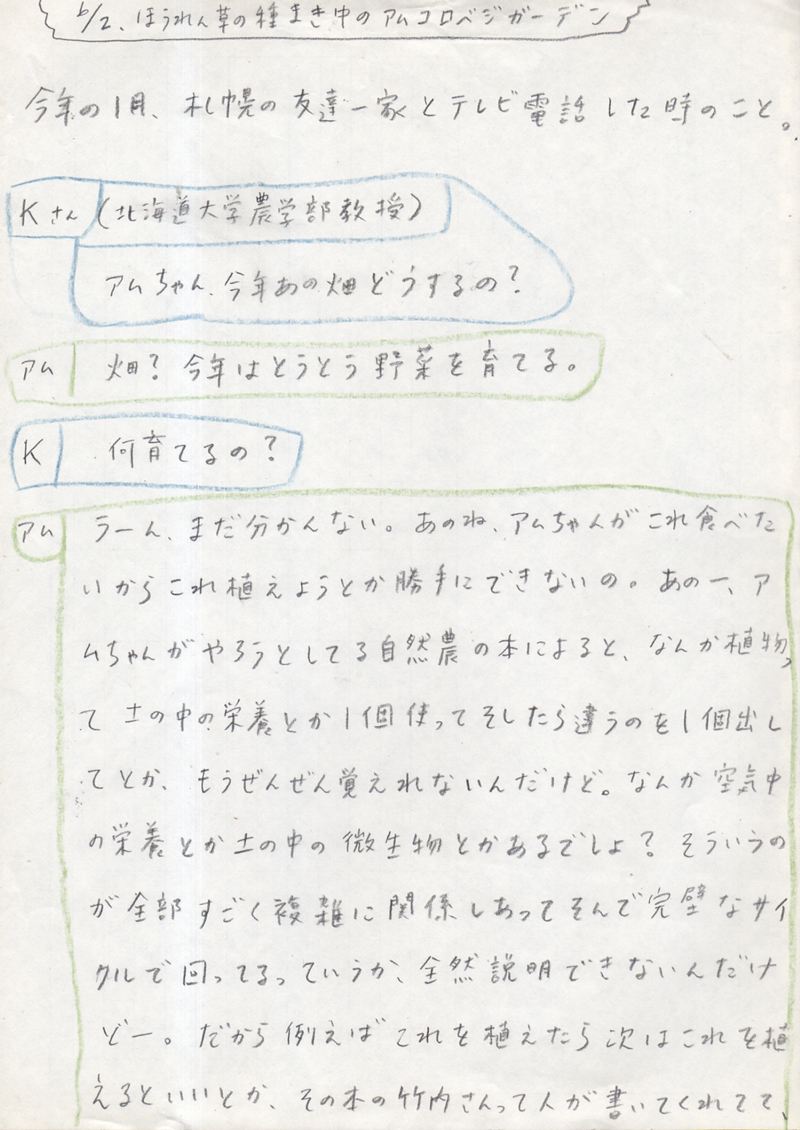 5/2、ほうれん草の種まき中のアムコロベジガーデン
今年の1月、札幌の友達一家とテレビ電話した時のこと。
Kさん(北海道大学農学部教授)
アムちゃん、今年あの畑どうするの?
アム 畑?今年はとうとう野菜を育てる。
K 何育てるの?
アム うーん、まだ分かんない。あのね、アムちゃんがこれ食べた
いからこれ植えようとか勝手にできないの。あのー、ア
ムちゃんがやろうとしてる自然農の本によると、なんか植物っ
て土の中の栄養とか1個使ってそしたら違うのを1個出し
てとか、もうぜんぜん覚えれないんだけど。なんか空気中
の栄養とか土の中の微生物とかあるでしょ?そういうの
が全部すごく複雑に関係しあってそんで完璧なサイ
クルで回ってるっていうか、全然説明できないんだけ
どー。だから例えばこれを植えたら次はこれを植
えるといいとか、その本の竹内さんって人が書いてくれてて、